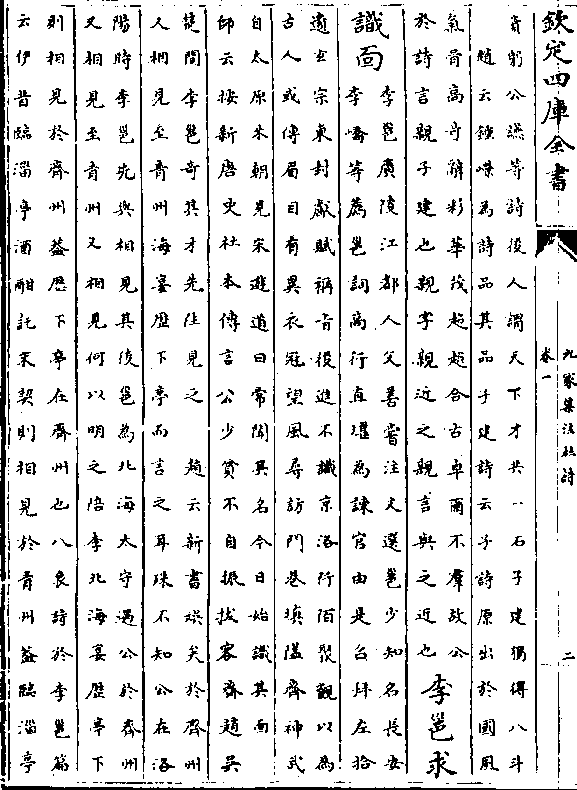 欽定四庫全書
九家集注杜詩
卷一
二
責躬公讌等詩後人謂天下才共一石子建獨得八斗
趙云鍾嶸為詩品其品子建詩云子詩原出於國風
氣骨高奇辭彩華茂超超合古卓爾不羣故公
於詩言親子建也親字親近之親言與之近也
李邕求
識面
李邕廣陵江都人父善嘗注文選邕少知名長安
李嶠等薦邕詞高行直堪為諫官由是召拜左拾
遺玄宗東封獻賦稱旨後進不識京洛阡陌聚觀以為
古人或傳眉目有異衣冠望風尋訪門巷填隘齊神武
自太原來朝見宋遊道曰常聞其名今日始識其面
師云按新唐史杜本傳言公少貧不自振扶客齊趙吳
楚間李邕奇其才先往見之 趙云新書誤矣於齊州
人相見至青州海宴歷下亭而言之耳殊不知公在洛
陽時李邕先與相見其後邕為北海太守遇公於齊州
又相見至青州又相見何以明之陪李北海宴歷亭下
則相見於齊州蓋歷下亭在齊州也八哀詩於李邕篇
云伊昔臨淄亭酒酣託末契則相見於青州蓋臨淄亭